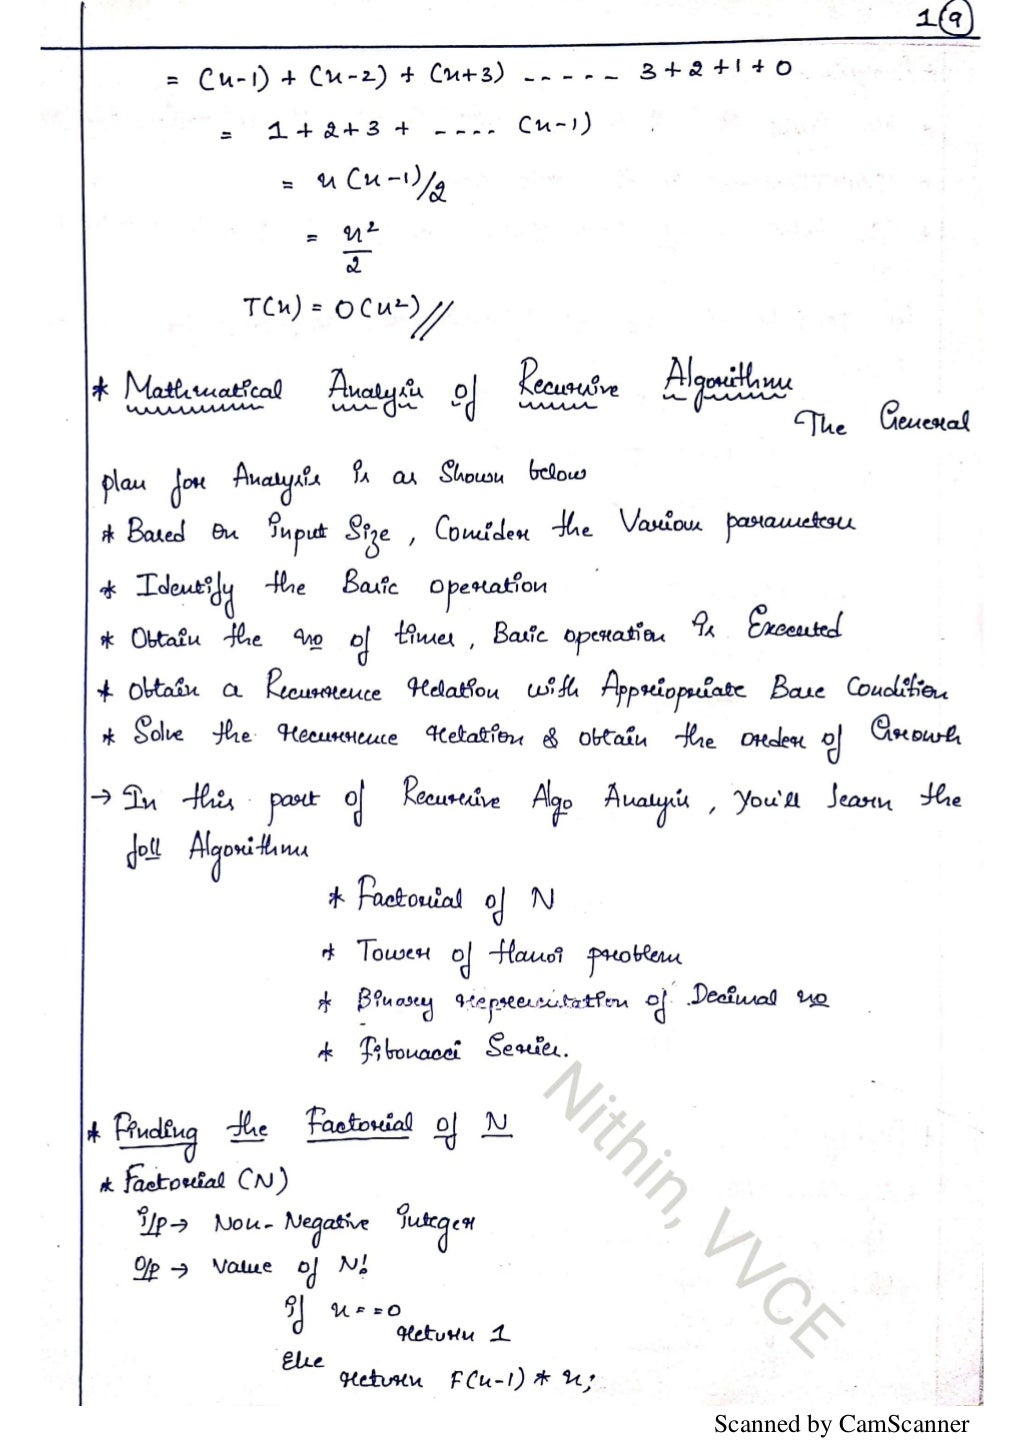 1 9
= (n-1) + (n-2) + (n+3) ----- 3+2+1+0
= 1+2+3+ ---- (n-1)
= n(n-1)/2
= n²
2
T(n) = O(n²)//
* Mathematical Analysis of Recursive Algorithms
The General
plan for Analysis is as Shown below
* Based on input Size, Consider the Various parameters
* Identify the Basic operation
* Obtain the no of times, Basic operation is Executed
* Obtain a Recurrence relation with Appriopriate Base Condition
* Solve the recurrence relation & obtain the order of Growth
→ In this part of Recursive Algo Analysis, you'll learn the
foll Algorithms
* Factorial of N
* Tower of Hanoi problem
* Binary representation of Decimal no
* Fibonacci Series.
* Finding the Factorial of N
* Factorial (N)
i/p → Non-Negative integer
o/p → Value of N!
if n==0
return 1
Else
return F(n-1) * n;
Nithin, VVCE
Scanned by CamScanner